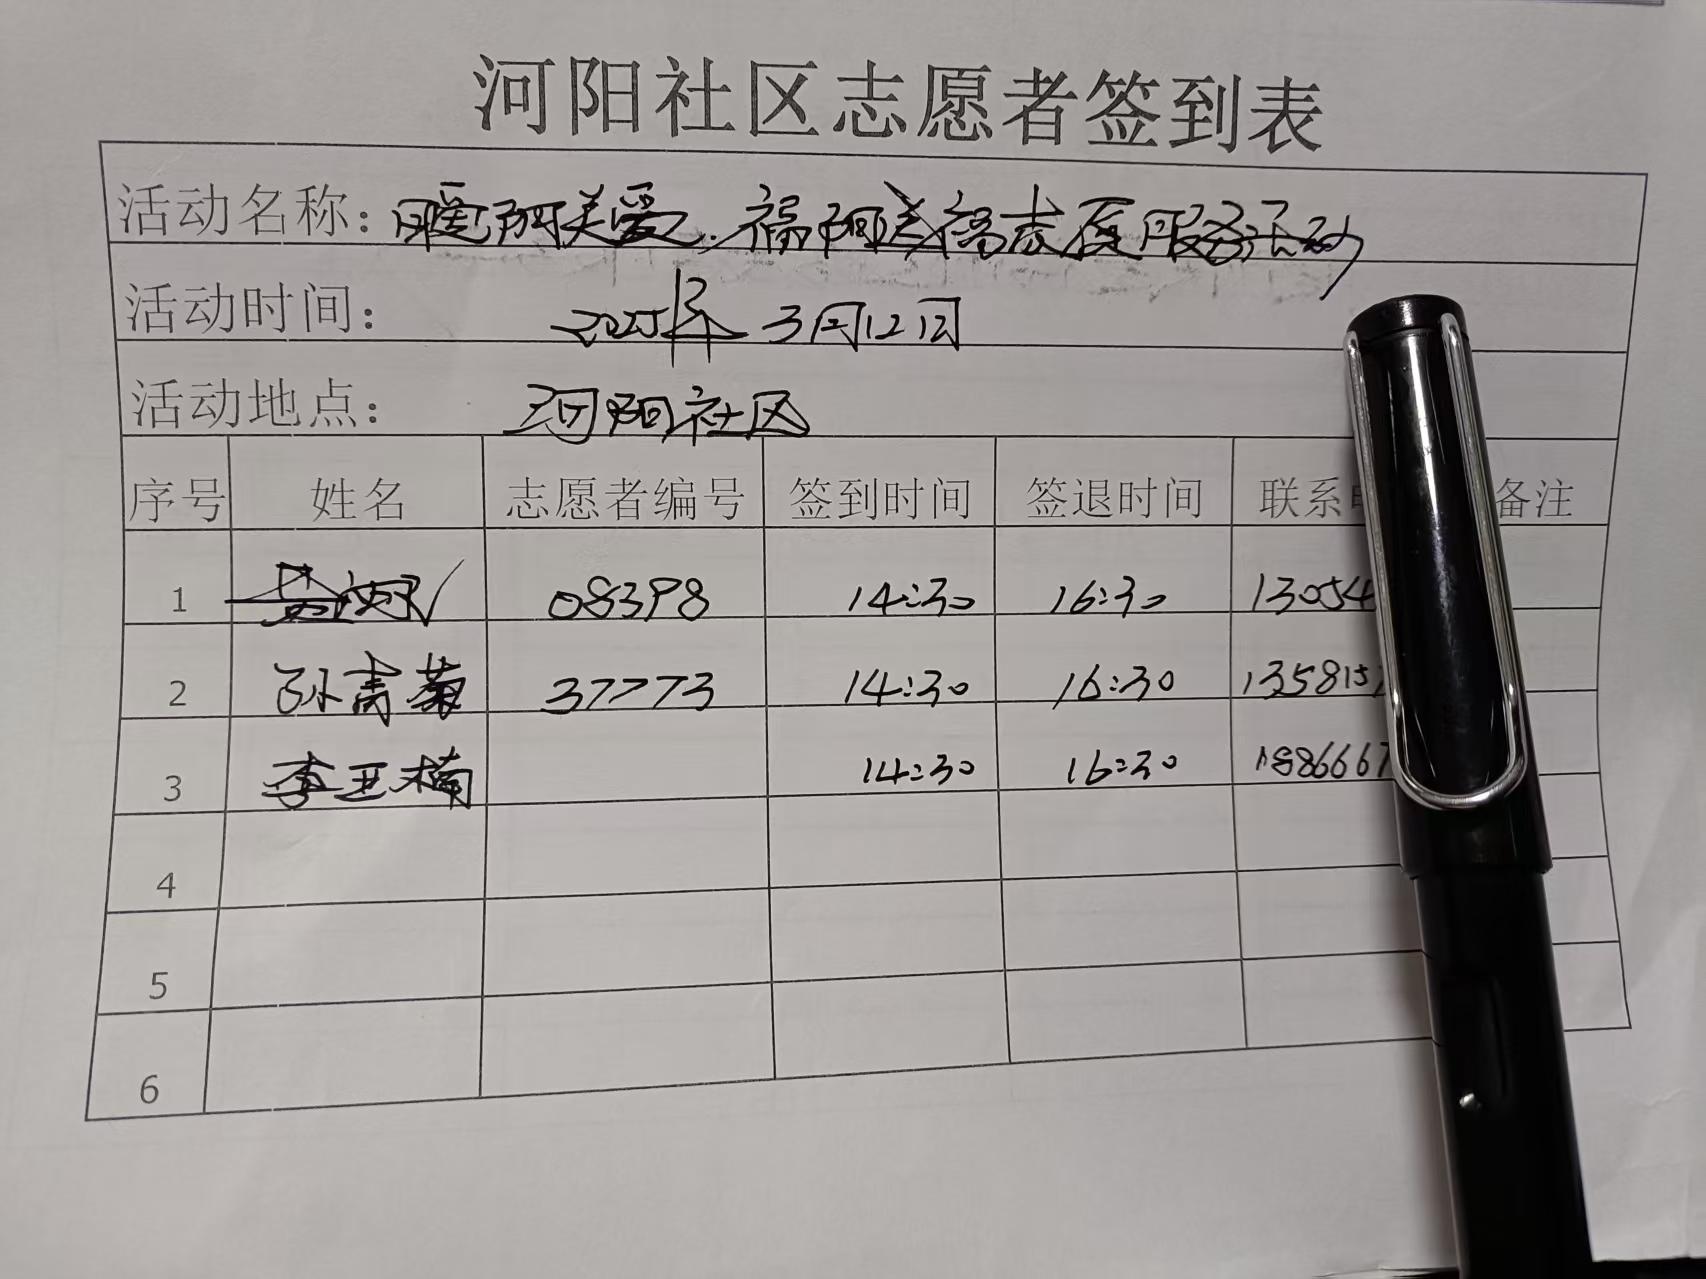 河阳社区志愿者签到表
活动名称：暖阳关爱.福阳送福志愿服务活动
活动时间： 2025年3月12日
活动地点： 河阳社区
序号 姓名 志愿者编号 签到时间 签退时间 联系 备注
1 08398 14:30 16:30 13054
2 孙青菊 37773 14:30 16:30 135815
3 李亚楠 14:30 16:30 188666
4
5
6